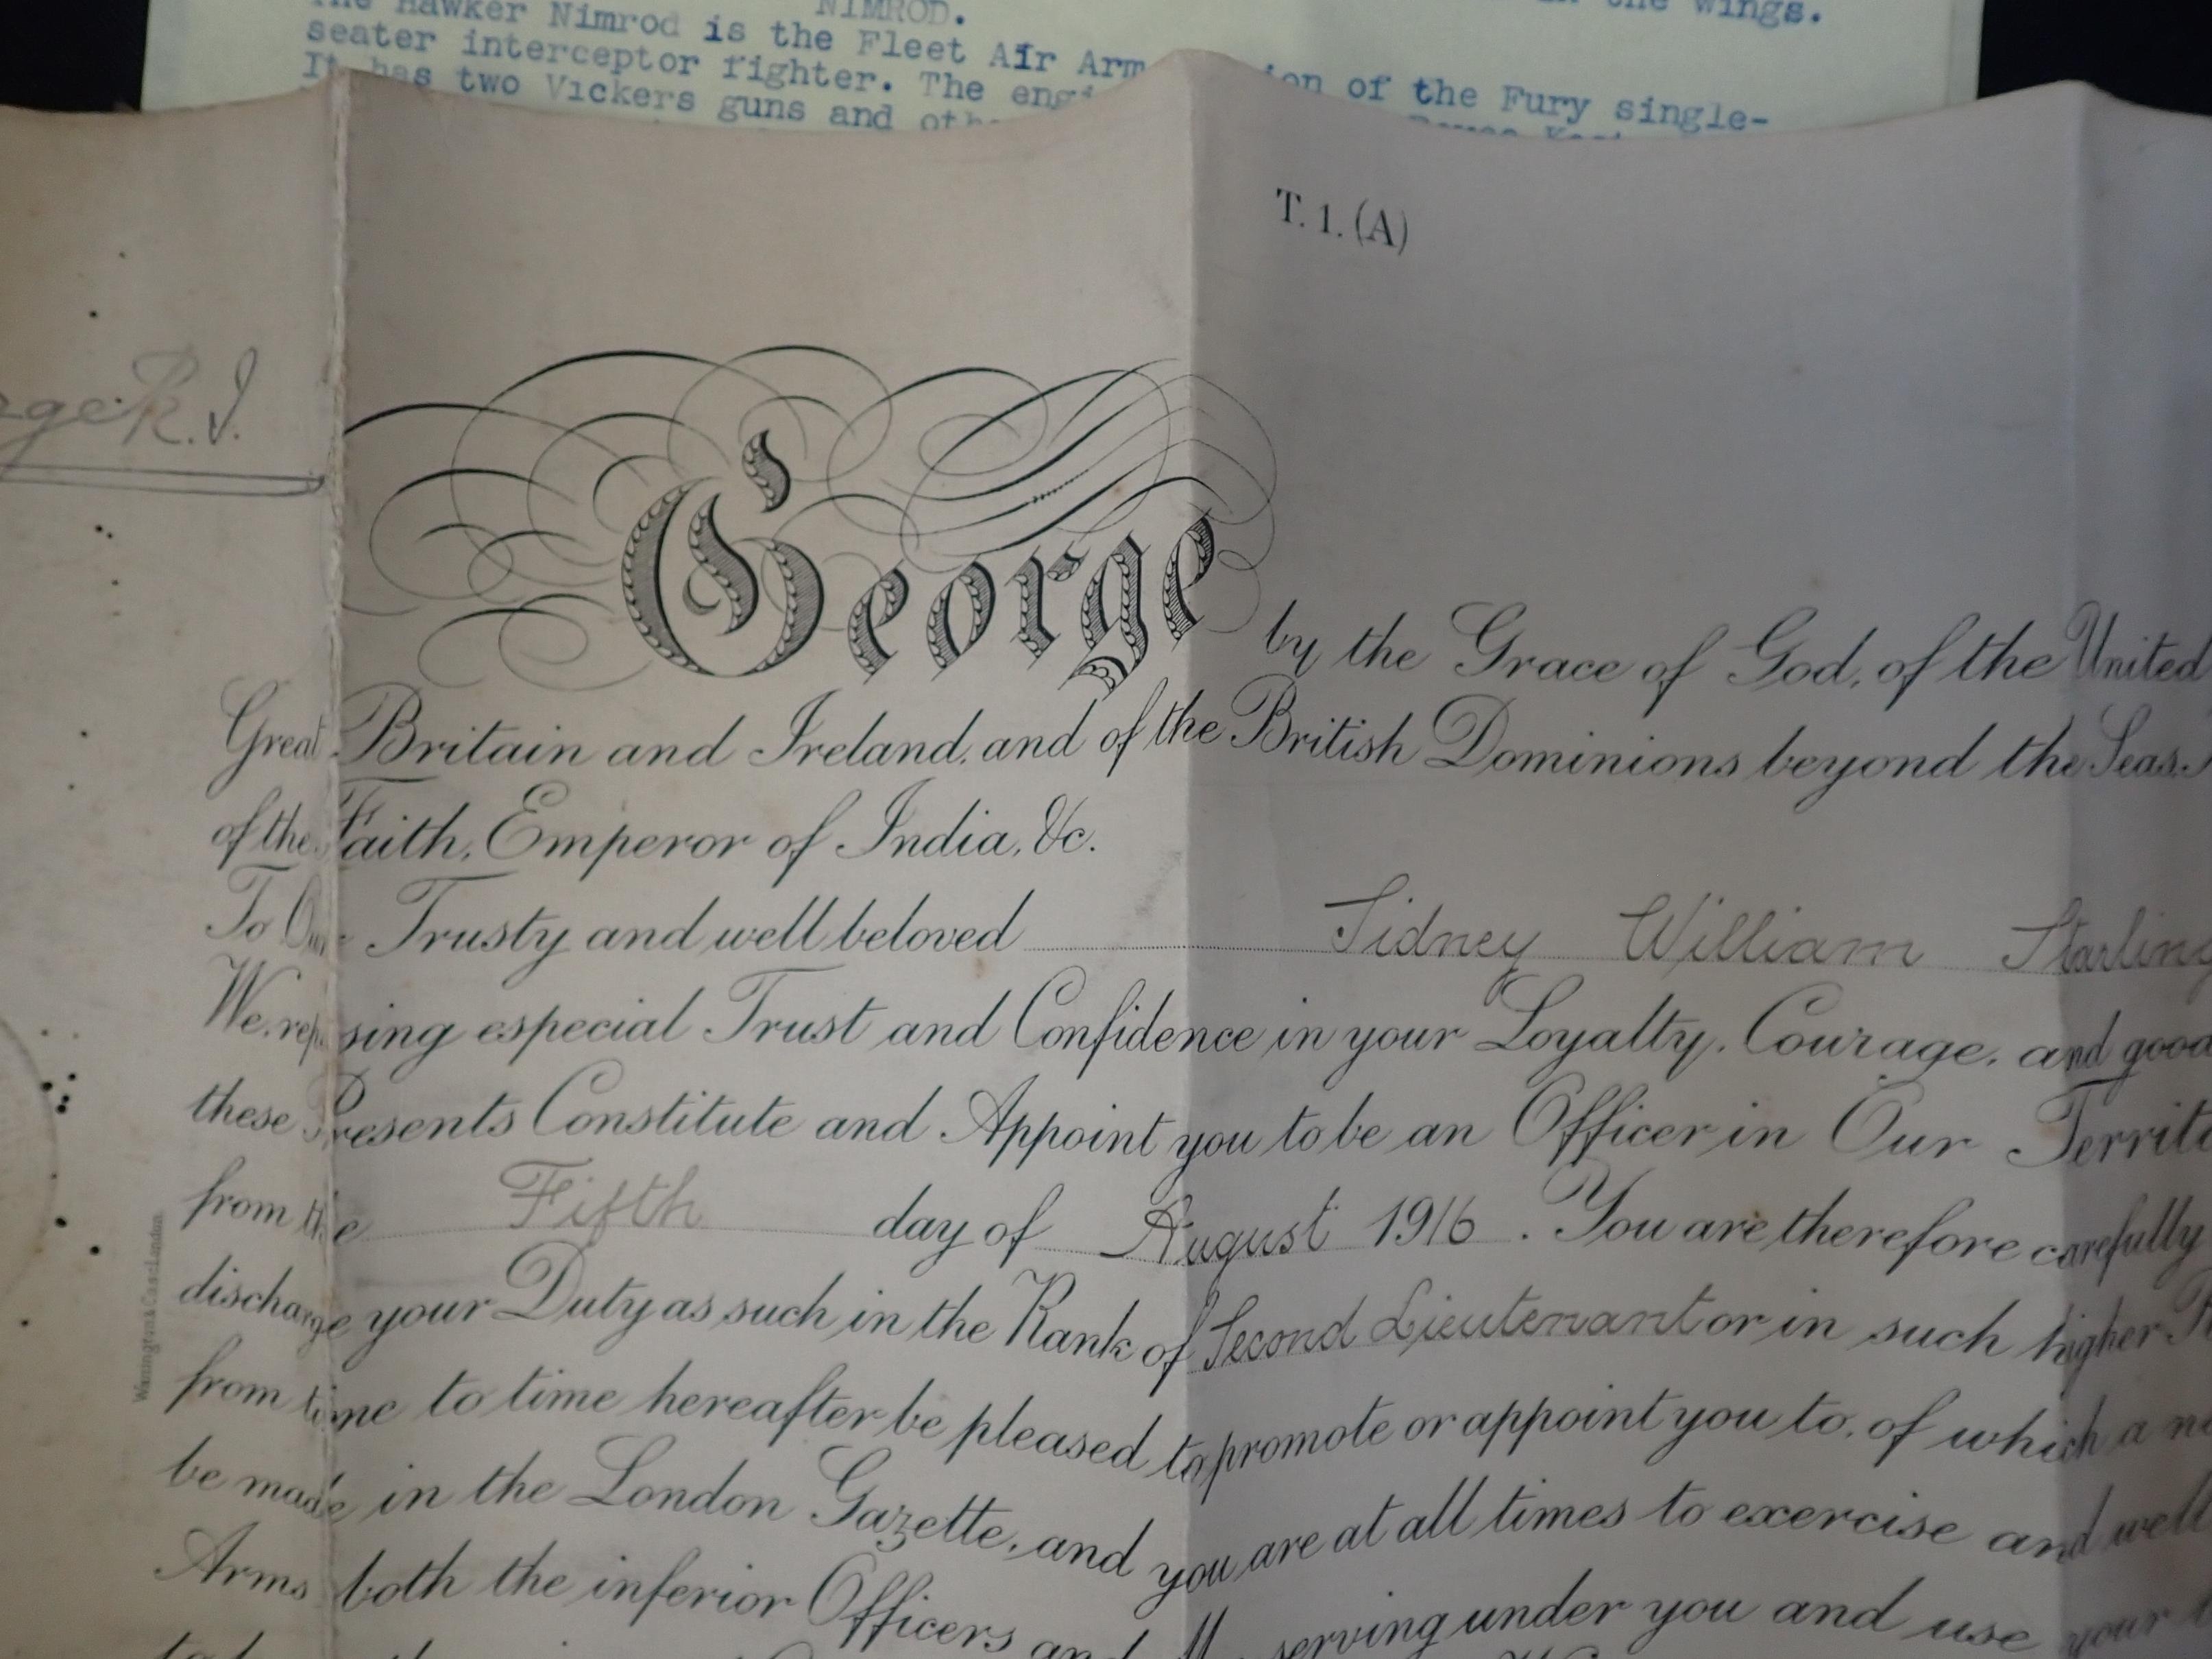 in the wings.
NIMROD.
The Hawker Nimrod is the Fleet Air Arm ion of the Fury single-
seater interceptor fighter. The engi
It has two Vickers guns and oth
T. 1. (A)
rge R. I.
George by the Grace of God, of the United
Great Britain and Ireland, and of the British Dominions beyond the Seas,
of the Faith, Emperor of India, &c.
To Our Trusty and well beloved Sidney William Starling
We, reposing especial Trust and Confidence in your Loyalty, Courage, and good
these Presents Constitute and Appoint you to be an Officer in Our Territo
from the Fifth day of August 1916. You are therefore carefully
discharge your Duty as such in the Rank of Second Lieutenant or in such higher
from time to time hereafter be pleased to promote or appoint you to, of which a no
be made in the London Gazette, and you are at all times to exercise and well
Arms both the inferior Officers and serving under you and use your
Warrington & Co. London